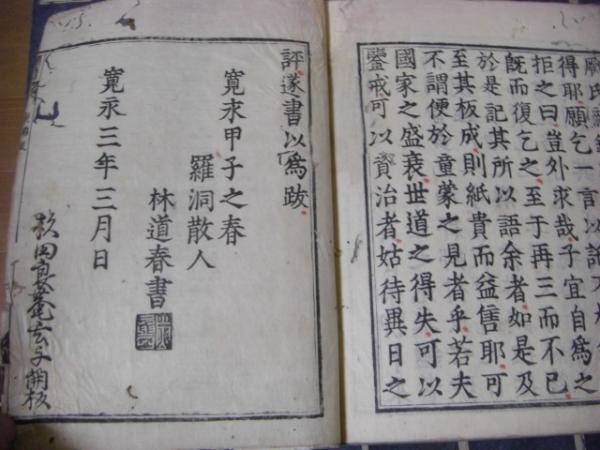 得耶願乞一言以
拒之曰豈外求哉子宜自為之
既而復乞之至于再三而不已
於是記其所以語余者如是及
至其板成則紙貴而益售耶可
不謂便於童蒙之見者乎若夫
國家之盛衰世道之得失可以
鑒戒可以資治者姑待異日之
評遂書以為跋
寬永甲子之春
羅洞散人
林道春書
寬永三年三月日
杉田良菴玄与開板